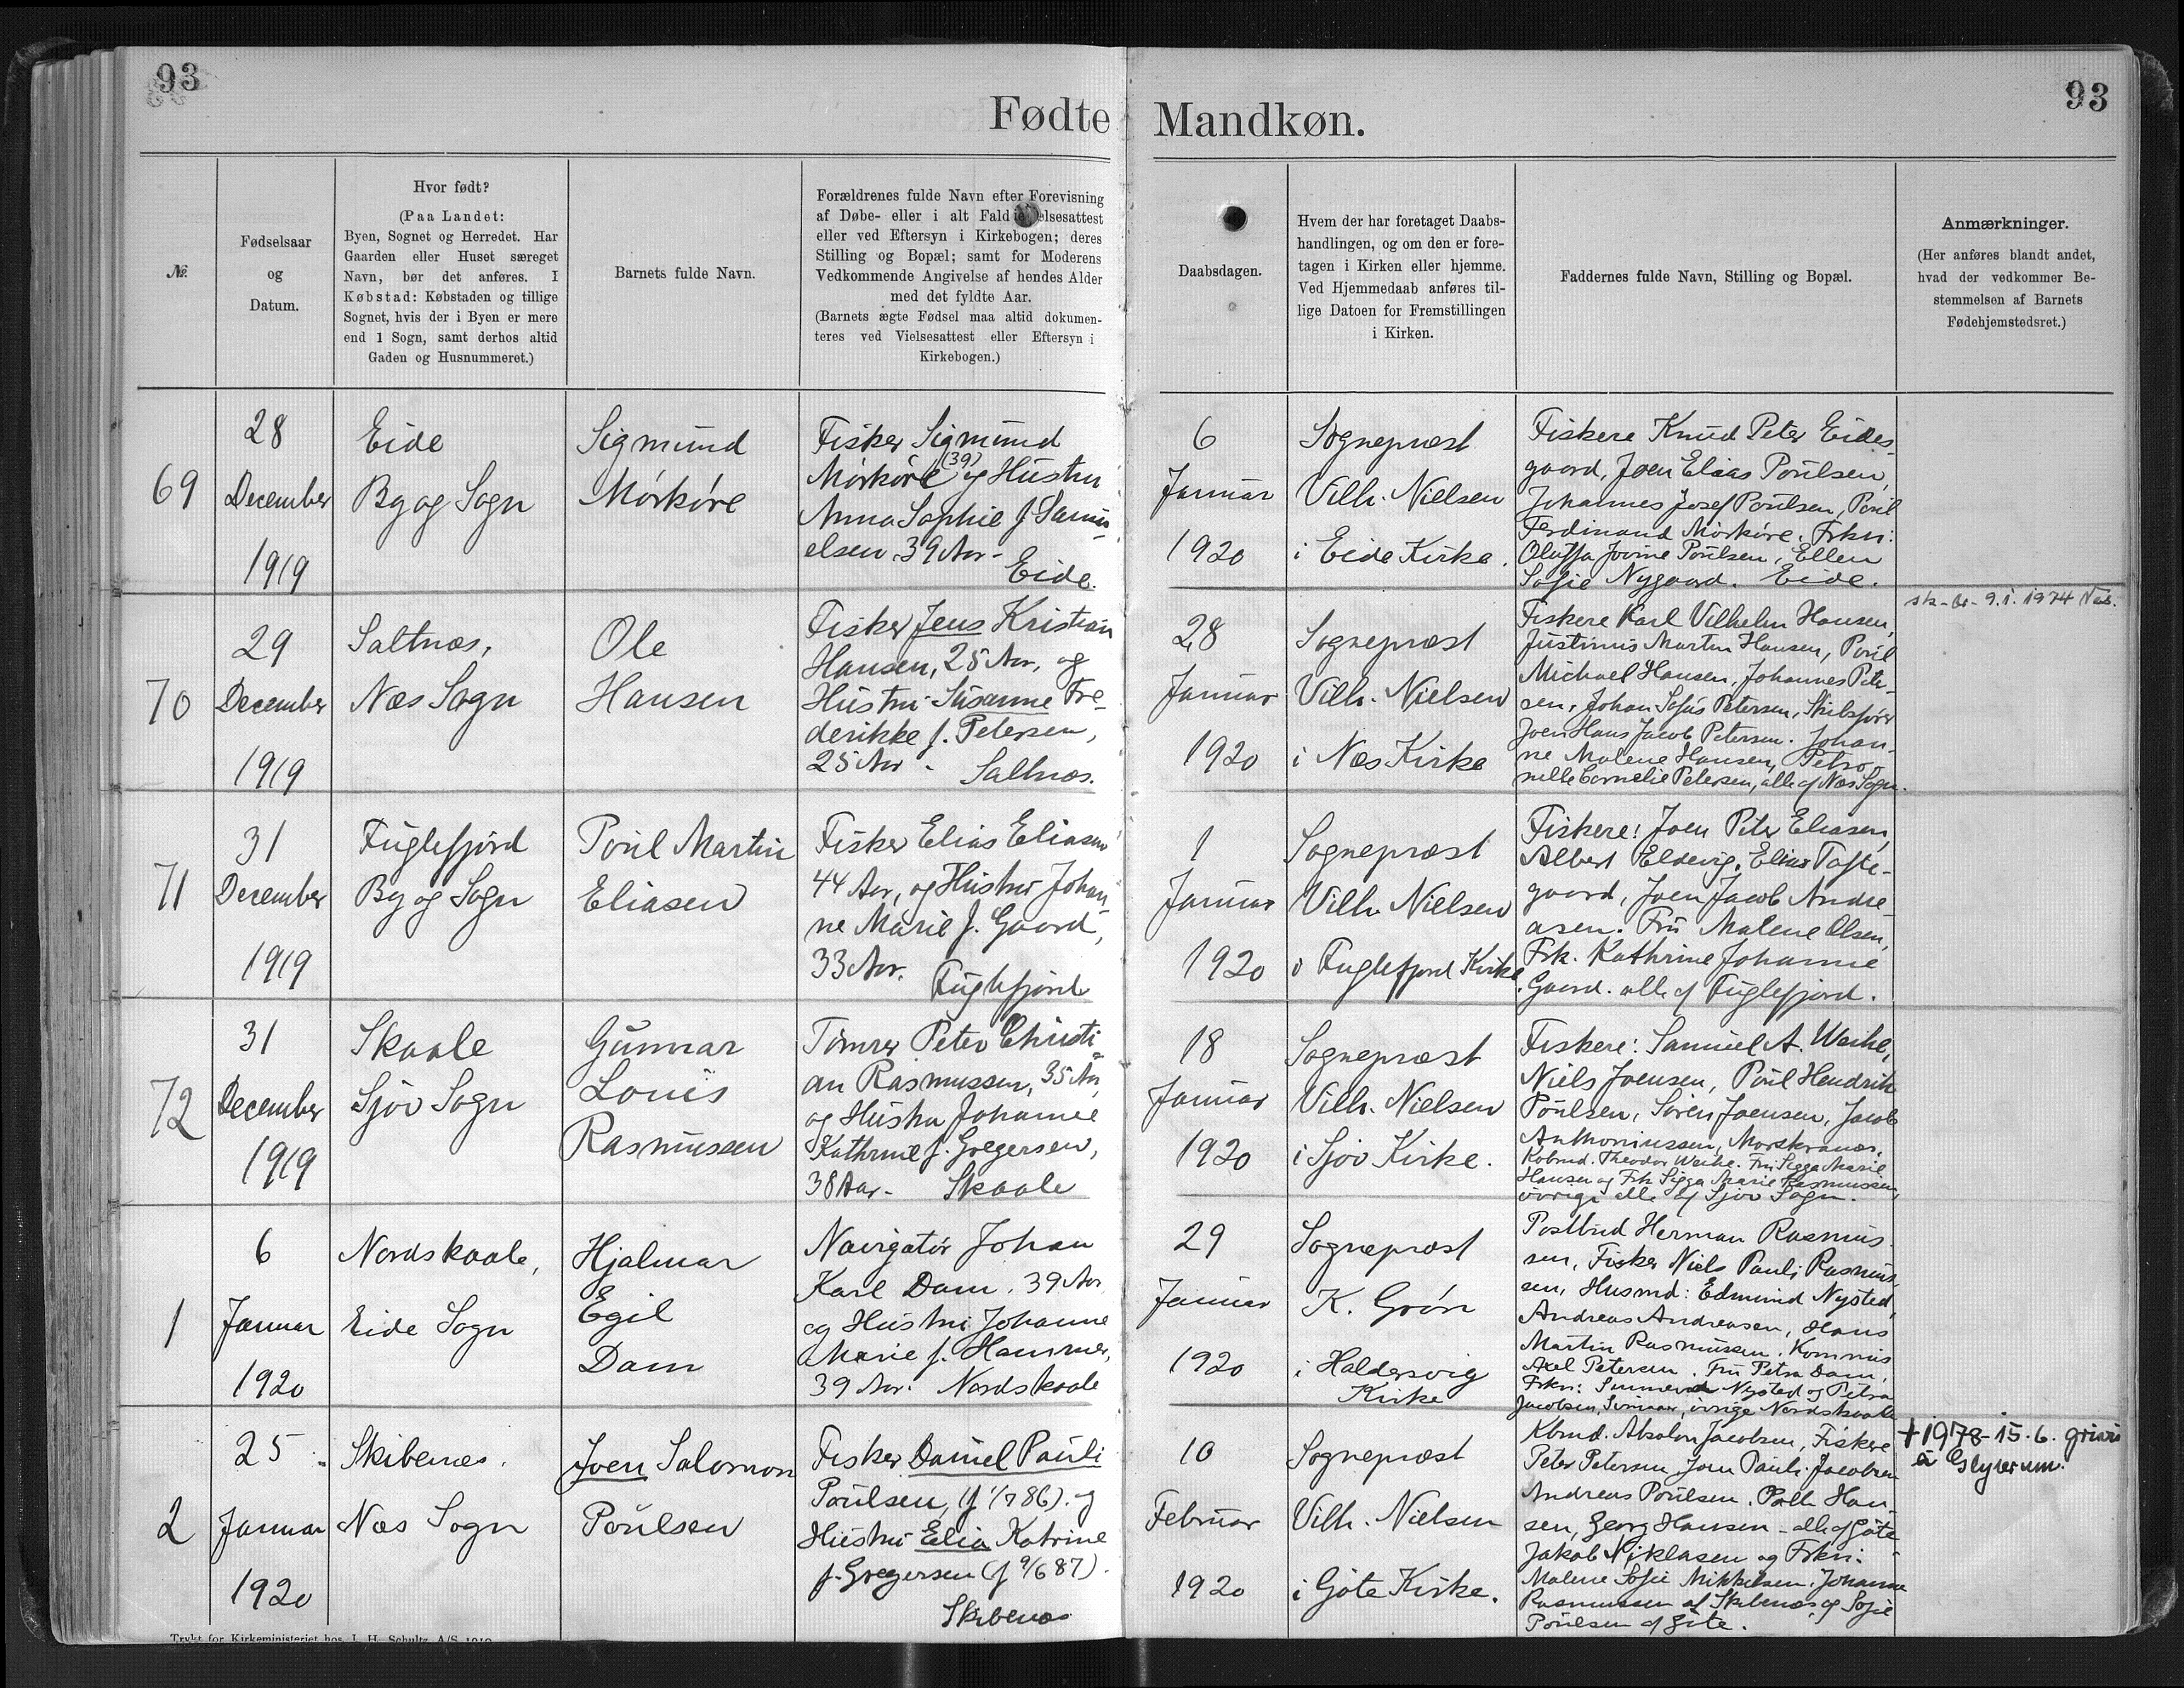 93
93
Fødte Mandkøn.
№.
Fødselsaar
og
Datum.
Hvor født?
(Paa Landet:
Byen, Sognet og Herredet. Har
Gaarden eller Huset særeget
Navn, bør det anføres. I
Købstad: Købstaden og tillige
Sognet, hvis der i Byen er mere
end 1 Sogn, samt derhos altid
Gaden og Husnummeret.)
Barnets fulde Navn.
Forældrenes fulde Navn efter Forevisning
af Døbe- eller i alt Fald elsesattest
eller ved Eftersyn i Kirkebogen; deres
Stilling og Bopæl; samt for Moderens
Vedkommende Angivelse af hendes Alder
med det fyldte Aar.
(Barnets ægte Fødsel maa altid dokumen-
teres ved Vielsesattest eller Eftersyn i
Kirkebogen.)
Daabsdagen.
Hvem der har foretaget Daabs-
handlingen, og om den er fore-
tagen i Kirken eller hjemme.
Ved Hjemmedaab anføres til-
lige Datoen for Fremstillingen
i Kirken.
Faddernes fulde Navn, Stilling og Bopæl.
Anmærkninger.
(Her anføres blandt andet,
hvad der vedkommer Be-
stemmelsen af Barnets
Fødehjemstedsret.)
69
28
December
1919
Eide
By og Sogn
Sigmund
Mórkóre
Fisker Sigmund
Mórkóre (39) og Hustru
Anna Sophie f. Samu-
elsen 39 Aar -
Eide.
6
Januar
1920
Sognepræst
Vilh. Nielsen
i Eide Kirke.
Fiskere Knud Peter Eides-
gaard, Joen Elias Poulsen,
Johannes Josef Poulsen, Poul
Ferdinand Mórkóre. Frkn:
Oluffa Jovine Poulsen, Ellen
Sofie Nygaard. Eide.
70
29
December
1919
Saltnæs,
Næs Sogn
Ole
Hansen
Fisker Jens Kristian
Hansen, 25 Aar, og
Hustru Susanne Fre-
derikke f. Petersen,
25 Aar - Saltnæs.
28
Januar
1920
Sognepræst
Vilh. Nielsen
i Næs Kirke
Fiskere Karl Vilhelm Hansen,
Justinus Martin Hansen, Poul
Michael Hansen, Johannes Peter-
sen, Johan Sofus Petersen, Skibsfører
Joen Hans Jacob Petersen. Johan-
ne Malene Hansen, Petro-
nelle Cornelie Petersen, alle af Næs Sogn.
9.1.1974
71
31
December
1919
Fuglefjord
By og Sogn
Poul Martin
Eliasen
Fisker Elias Eliasen
44 Aar, og Hustru Johan-
ne Marie f. Gaard,
33 Aar. Fuglefjord
1
Januar
1920
Sognepræst
Vilh. Nielsen
i Fuglefjord Kirke.
Fiskere: Joen Peter Eliasen,
Albert Eldevig, Elias Tofte-
gaard, Joen Jacob Andre-
asen. Fru Malene Olsen,
Frk. Kathrine Johanne
Gaard. alle af Fuglefjord.
72
31
December
1919
Skaale
Sjóv Sogn
Gunnar
Louis
Rasmussen
Tómrer Peter Christi-
an Rasmussen, 35 Aar,
og Hustru Johanne
Kathrine f. Gregersen,
38 Aar - Skaale
18
Januar
1920
Sognepræst
Vilh. Nielsen
i Sjóv Kirke.
Fiskere: Samuel A. Weihe,
Niels Joensen, Poul Hendrik
Poulsen, Sóren Joensen, Jacob
Anthoniussen, Morskranæs,
Kobmd. Theodor Weihe. Fru Sigga Marie
Hansen og Frk Sigga Marie Rasmussen,
óvrige alle af Sjóv Sogn.
1
6
Januar
1920
Nordskaale,
Eide Sogn
Hjalmar
Egil
Dam
Navigatór Johan
Karl Dam. 39 Aar
og Hustru Johanne
Marie f. Hammer,
39 Aar. Nordskaale
29
Januar
1920
Sognepræst
K. Grón
i Haldersvig
Kirke
Postbud Herman Rasmus-
sen, Fisker Niels Pauli Rasmus-
sen, Husmd: Edmund Nysted,
Andreas Andreasen, Hans
Martin Rasmussen. Kommis
Axel Petersen. Fru Petra Dam,
Frkn: Nysted og Petra
Jacobsen, óvrige Nordskaale
2
25
Januar
1920
Skibenes.
Næs Sogn
Joen Salomon
Poulsen
Fisker Daniel Pauli
Poulsen, (f 1/7 86). og
Hustru Elia Katrine
f. Gregersen (f 9/6 87).
Skibenæs
10
Februar
1920
Sognepræst
Vilh. Nielsen
i Góte Kirke.
Kbmd. Absalon Jacobsen, Fiskere
Peter Petersen, Joen Pauli Jacobsen
Andreas Poulsen. Palli Han-
sen, Georg Hansen - alle af Góte
Jakob Niklasen og Frkn:
Malene Sofie Mikkelsen, Johanne
Rasmussen af Skibenæs, og Sofie
Poulsen af Góte.
+ 1978-15.6. grivis
á Glyvrum.
Trykt for Kirkeministeriet hos J. H. Schultz A/S 1919